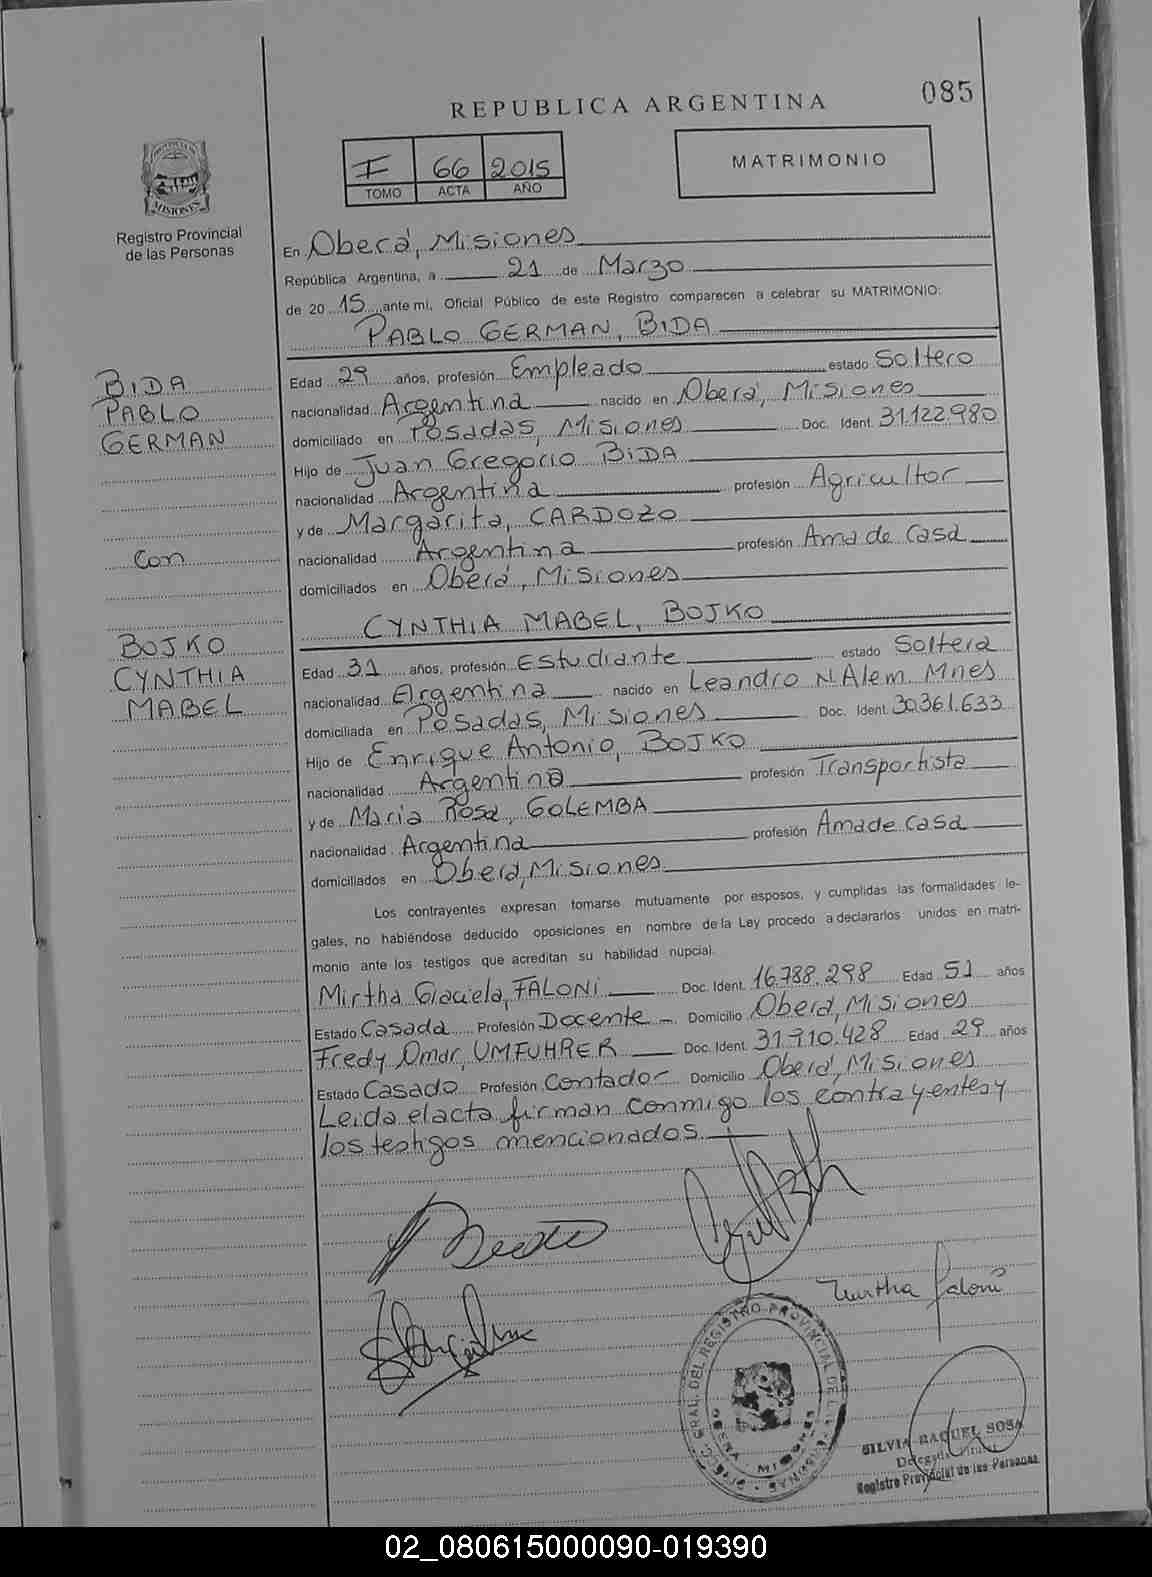 085
REPUBLICA ARGENTINA
I 66 2015
TOMO ACTA AÑO
MATRIMONIO
PROVINCIA DE
MISIONES
Registro Provincial
de las Personas
En Oberá, Misiones
República Argentina, a 21 de Marzo
de 20 15 ante mí, Oficial Público de este Registro comparecen a celebrar su MATRIMONIO:
PABLO GERMAN, BIDA
BIDA
PABLO
GERMAN
Con
BOJKO
CYNTHIA
MABEL
Edad 29 años, profesión Empleado estado Soltero
nacionalidad Argentina nacido en Oberá, Misiones
domiciliado en Posadas, Misiones Doc. Ident. 31.122.980
Hijo de Juan Gregorio BIDA
nacionalidad Argentina profesión Agricultor
y de Margarita, CARDOZO
nacionalidad Argentina profesión Ama de Casa
domiciliados en Oberá, Misiones
CYNTHIA MABEL, BOJKO
Edad 31 años, profesión Estudiante estado Soltera
nacionalidad Argentina nacido en Leandro N Alem. Mnes
domiciliada en Posadas, Misiones Doc. Ident. 30.361.633
Hijo de Enrique Antonio, BOJKO
nacionalidad Argentina profesión Transportista
y de Maria Rosa, GOLEMBA
nacionalidad Argentina profesión Ama de Casa
domiciliados en Oberá, Misiones
Los contrayentes expresan tomarse mutuamente por esposos, y cumplidas las formalidades le-
gales, no habiéndose deducido oposiciones en nombre de la Ley procedo a declararlos unidos en matri-
monio ante los testigos que acreditan su habilidad nupcial.
Mirtha Graciela, FALONI Doc. Ident. 16.788.298 Edad 51 años
Estado Casada Profesión Docente Domicilio Oberá, Misiones
Fredy Omar, UMFUHRER Doc. Ident. 31.910.428 Edad 29 años
Estado Casado Profesión Contador Domicilio Oberá, Misiones
Leida el acta firman conmigo los contrayentes y
los testigos mencionados.
Mirtha Faloni
GRAL. DEL REGISTRO PROVINCIAL DE LAS PERSONAS
OBERA MISIONES
SILVIA RAQUEL SOSA
Delegada Titular
Registro Provincial de las Personas
02_080615000090-019390